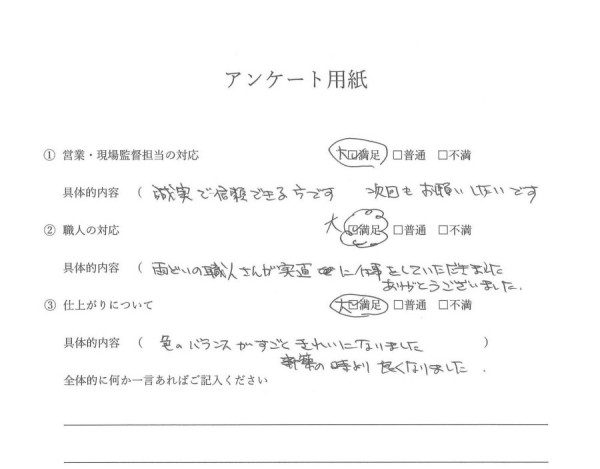 アンケート用紙
① 営業・現場監督担当の対応 大□満足 □普通 □不満
具体的内容 ( 誠実で信頼できる方です 次回もお願いしたいです
② 職人の対応 大□満足 □普通 □不満
具体的内容 ( 雨どいの職人さんが実直に仕事をしていただきました
ありがとうございました.
③ 仕上がりについて 大□満足 □普通 □不満
具体的内容 ( 色のバランスがすごくきれいになりました )
新築の時より良くなりました.
全体的に何か一言あればご記入ください